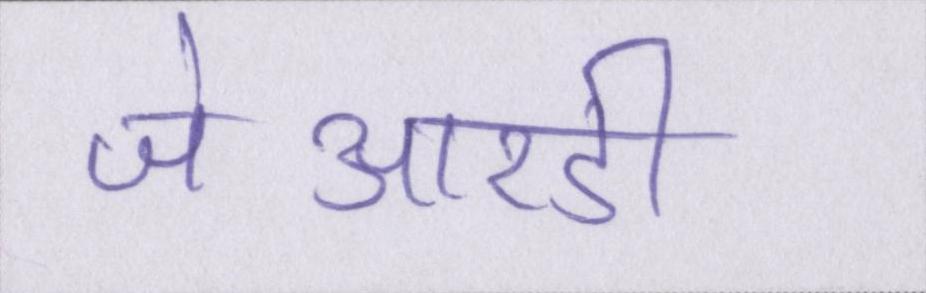 जेआरडी